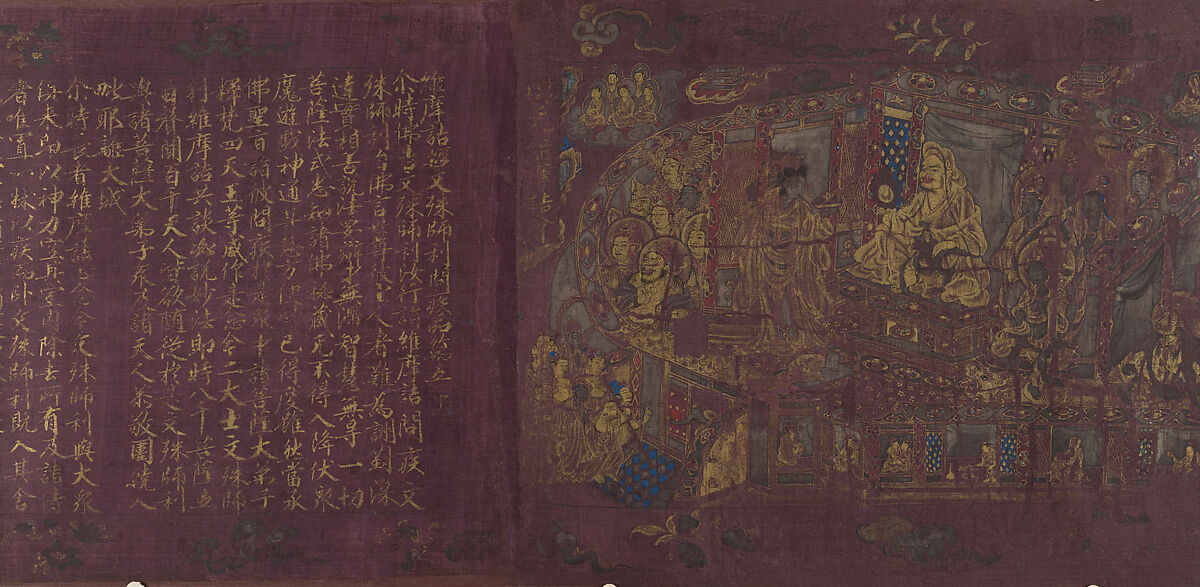 維摩詰經文殊師利問疾品第五
尒時佛告文殊師利汝行詣維摩詰問疾文
殊師利白佛言世尊彼上人者難為詶對深
達實相善說法要辯才無滯智慧無㝵一切
菩薩法式悉知諸佛秘藏无不得入降伏眾
魔遊戲神通其慧方便皆已得度雖然當承
佛聖旨詣彼問疾於是眾中諸菩薩大弟子
釋梵四天王等咸作是念今二大士文殊師
利維摩詰共談必說妙法即時八千菩薩五
百聲聞百千天人皆欲隨從於是文殊師利
與諸菩薩大弟子眾及諸天人恭敬圍繞入
毗耶離大城
尒時長者維摩詰心念今文殊師利與大眾
俱來即以神力空其室內除去所有及諸侍
者唯置一牀以疾而臥文殊師利既入其舍